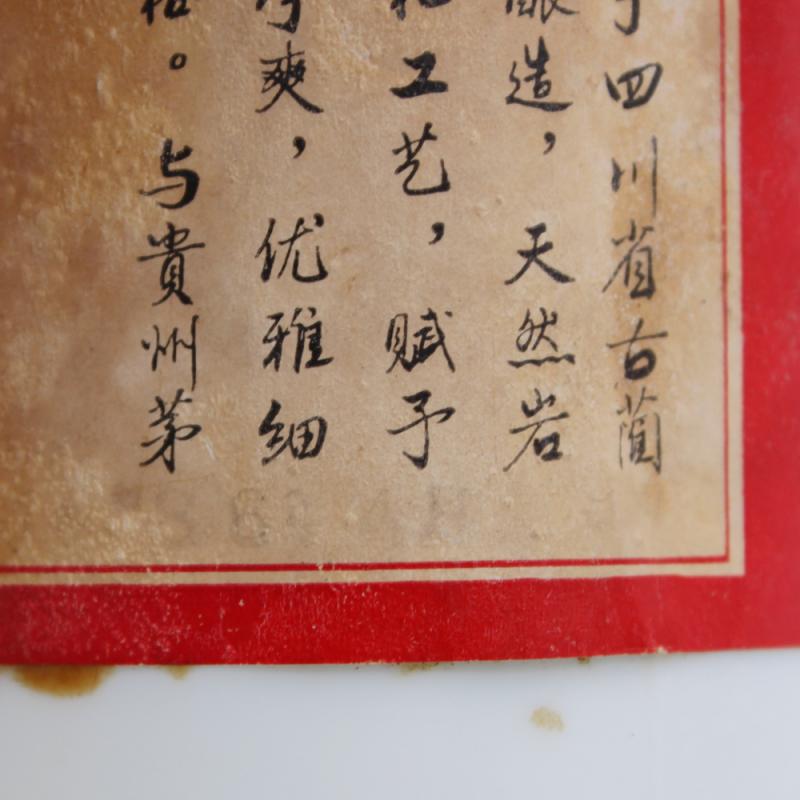 四川省古蔺
酿造，天然岩
工艺，赋予
爽，优雅细
。与貴州茅